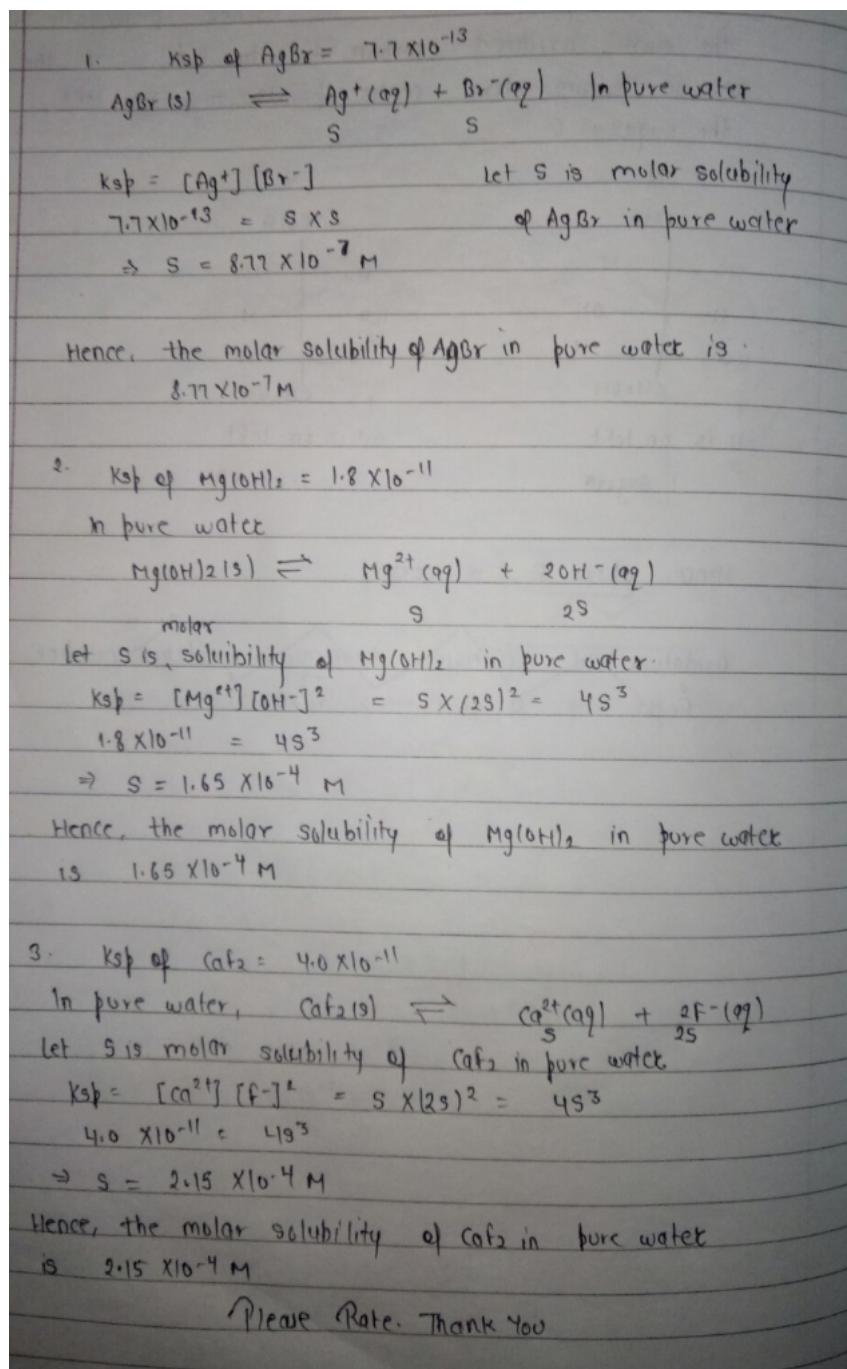 1. Ksp of AgBr = 7.7 X10-13
AgBr (s) ⇌ Ag+ (aq) + Br-(aq) In pure water
S S
Ksp = [Ag+] [Br-] Let S is molar solubility
7.7X10-13 = S X S of AgBr in pure water
⇒ S = 8.77 X 10-7 M
Hence, the molar solubility of AgBr in pure water is.
8.77 X10-7 M
2. Ksp of Mg(OH)2 = 1.8 X10-11
In pure water
Mg(OH)2 (s) ⇌ Mg2+ (aq) + 2OH- (aq)
S 2S
molar
let S is, soluibility of Mg(OH)2 in pure water.
Ksp = [Mg2+] [OH-]2 = S X (2S)2 = 4S3
1.8 X10-11 = 4S3
⇒ S = 1.65 X10-4 M
Hence, the molar solubility of Mg(OH)2 in pure water
is 1.65 X10-4 M
3. Ksp of Caf2 = 4.0 X10-11
In pure water, Caf2(s) ⇌ Ca2+ (aq) + 2F-(aq)
S 2S
Let S is molar solubility of Caf2 in pure water
Ksp = [Ca2+] [F-]2 = S X(2S)2 = 4S3
4.0 X10-11 = 4S3
⇒ S = 2.15 X10-4 M
Hence, the molar solubility of Caf2 in pure water
is 2.15 X10-4 M
Please Rate. Thank You